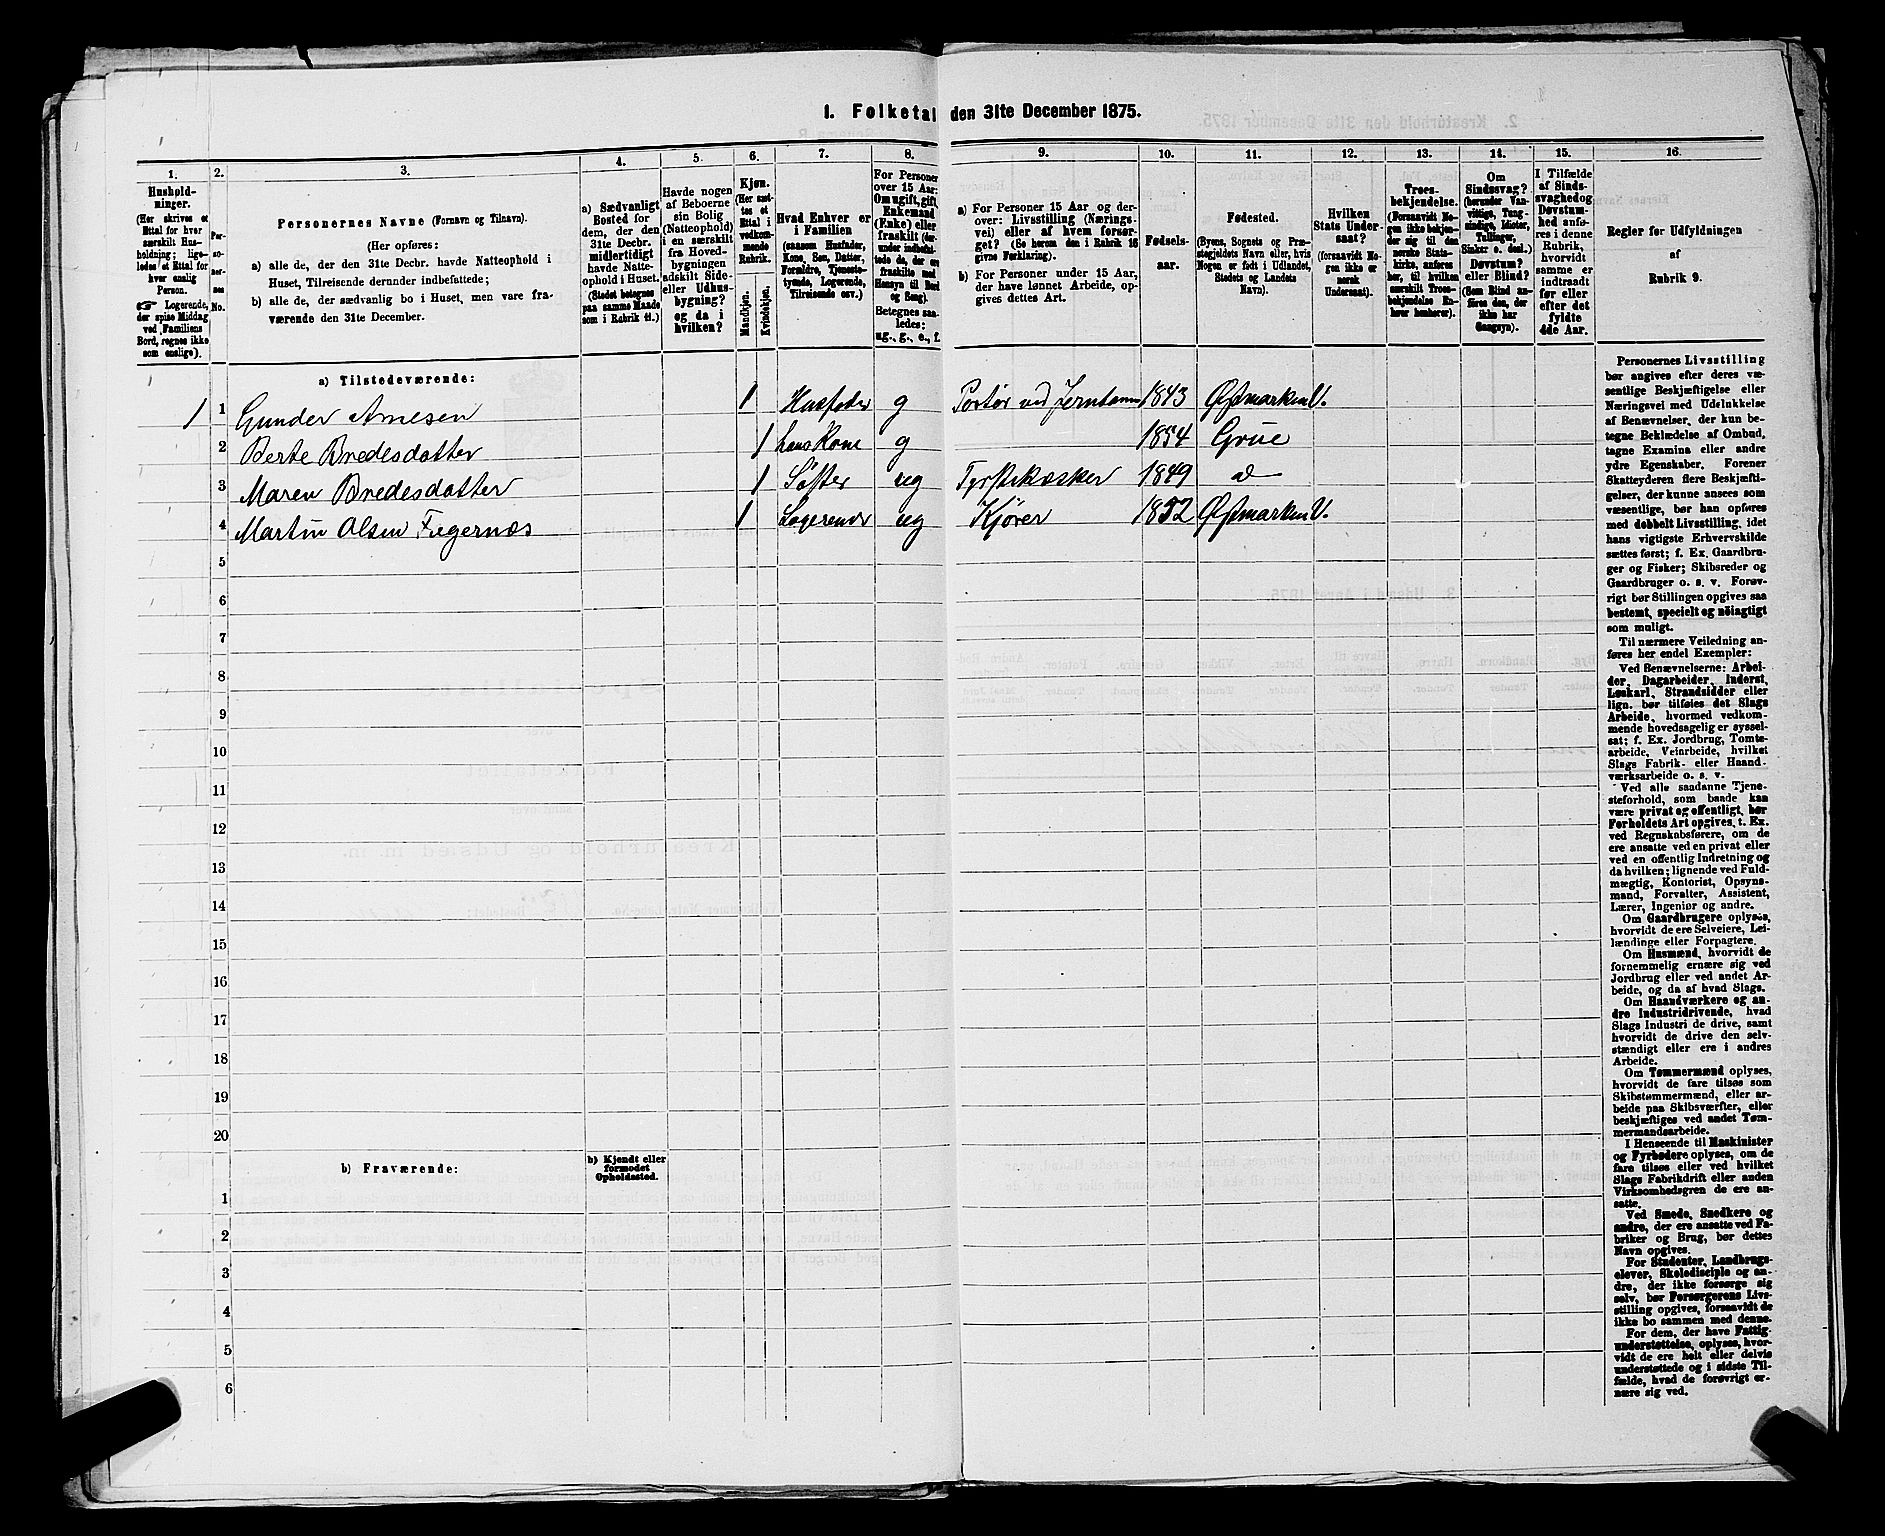 1. Folketal den 31te December 1875.
1.
2.
3.
4.
5.
6.
7.
8.
9.
10.
11.
12.
13.
14.
15.
16.
Hushold-
ninger.
(Her skrives et
Ettal for hver
særskilt Hus-
holdning; lige-
ledes et Ettal for
hver enslig
Person.
☞ Logerende,
der spise Middag
ved Familiens
Bord, regnes ikke
som enslige).
Per-
so-
ner-
nes
No.
Personernes Navne (Fornavn og Tilnavn).
(Her opføres:
a) alle de, der den 31te Decbr. havde Natteophold i
Huset, Tilreisende derunder indbefattede;
b) alle de, der sædvanlig bo i Huset, men vare fra-
værende den 31te December.
a) Sædvanligt
Bosted for
dem, der den
31te Decbr.
midlertidigt
havde Natte-
ophold i Huset.
(Stedet betegnes
paa samme Maade
som i Rubrik 11.)
Havde nogen
af Beboerne
sin Bolig
(Natteophold)
i en særskilt
fra Hoved-
bygningen
adskilt Side-
eller Udhus-
bygning?
og da i
hvilken?
Kjøn.
(Her sæt-
tes et
Ettal i
vedkom-
mende
Rubrik.
Mandkjøn.
Kvindekjøn.
Hvad Enhver er
i Familien
(saasom Husfader,
Kone, Søn, Datter,
Forældre, Tjeneste-
tyende, Logerende,
Tilreisende osv.)
For Personer
over 15 Aar:
Om ugift, gift,
Enkemand
(Enke) eller
fraskilt (der-
under indbefat-
tede de, der ere
fraskilte med
Hensyn til Bord
og Seng).
Betegnes saa-
ledes:
ug., g., e., f.
a) For Personer 15 Aar og der-
over: Livsstilling (Nærings-
vei) eller af hvem forsør-
get? (Se herom den i Rubrik 16
givne Forklaring).
b) For Personer under 15 Aar,
der have lønnet Arbeide, op-
gives dettes Art.
Fødsels-
aar.
Fødested.
(Byens, Sognets og Præ-
stegjeldets Navn eller, hvis
Nogen er født i Udlandet,
Stedets og Landets
Navn).
Hvilken
Stats Under-
saat?
(forsaavidt No-
gen ikke er
norsk
Undersaat).
Troes-
bekjendelse.
(Forsaavidt No-
gen ikke bekjen-
der sig til den
norske Stats-
kirke, anføres
her, til hvilken
særskilt Troes-
bekjendelse En-
hver henhører).
Om
Sindssvag?
(herunder Van-
vittige, Tung-
sindige, Idioter,
Tullinger,
Sinker o. desl.)
Døvstum?
eller Blind?
(Som Blind an-
føres den, der
ikke har
Gangsyn).
I Tilfælde
af Sinds-
svaghed og
Døvstum-
hed anfø-
res i denne
Rubrik,
hvorvidt
samme er
indtraadt
før eller
efter det
fyldte
4de Aar.
Regler før Udfyldningen
af
Rubrik 9.
a) Tilstedeværende:
1 1 Gunder Arnesen 1 Husfader g Portør ved Jernbanen 1843 Østmarken V.
2 Berte Bredesdatter 1 hans Kone g 1854 Grue
3 Maren Bredesdatter 1 Søster ug Fyrstikæsker 1849 d
4 Martin Olsen Fegernæs 1 Logerende ug Kjører 1852 Østmarken V.
5
6
7
8
9
10
11
12
13
14
15
16
17
18
19
20
b) Fraværende:
b) Kjendt eller
formodet
Opholdssted.
1
2
3
4
5
6
Personernes Livsstilling
bør angives efter deres væ-
sentlige Beskjæftigelse eller
Næringsvei med Udelukkelse
af Benævnelser, der kun be-
tegne Beklædelse af Ombud,
tagne Examina eller andre
ydre Egenskaber. Forener
Skatteyderen flere Beskjæfti-
gelser, der kunne ansees som
væsentlige, bør han opføres
med dobbelt Livsstilling, idet
hans vigtigste Erhvervskilde
sættes først; f. Ex. Gaardbru-
ger og Fisker; Skibsreder og
Gaardbruger o. s. v. Forøv-
rigt bør Stillingen opgives saa
bestemt, specielt og nöiagtigt
som muligt.
Til nærmere Veiledning an-
føres her endel Exempler:
Ved Benævnelserne: Arbei-
der, Dagarbeider, Inderst,
Løskarl, Strandsidder eller
lign. bør tilføies det Slags
Arbeide, hvormed vedkom-
mende hovedsagelig er syssel-
sat; f. Ex. Jordbrug, Tomte-
arbeide, Veiarbeide, hvilket
Slags Fabrik- eller Haand-
værksarbeide o. s. v.
Ved alle saadanne Tjene-
steforhold, som baade kan
være privat og offentligt, bør
Forholdets Art opgives, t. Ex.
ved Regnskabsførere, om de
ere ansatte ved en privat eller
ved en offentlig Indretning og
da hvilken; lignende ved Fuld-
mægtig, Kontorist, Opsyns-
mand, Forvalter, Assistent,
Lærer, Ingeniør og andre.
Om Gaardbrugere oplyses,
hvorvidt de ere Selveiere, Lei-
lændinge eller Forpagtere.
Om Husmænd, hvorvidt de
fornemmelig ernære sig ved
Jordbrug eller ved andet Ar-
beide, og da af hvad Slags.
Om Haandværkere og an-
dre Industridrivende, hvad
Slags Industri de drive, samt
hvorvidt de drive den selv-
stændigt eller ere i andres
Arbeide.
Om Tømmermænd oplyses,
hvorvidt de fare tilsøs som
Skibstømmermænd, eller ar-
beide paa Skibsværfter, eller
beskjæftiges ved andet Tøm-
mermandsarbeide.
I Henseende til Maskinister
og Fyrbødere oplyses, om de
fare tilsøs eller ved hvilket
Slags Fabrikdrift eller anden
Virksomhedsgren de ere an-
satte.
Ved Smede, Snedkere og
andre, der ere ansatte ved Fa-
briker og Brug, bør dettes
Navn opgives.
For Studenter, Landbrugs-
elever, Skoledisciple og an-
dre, der ikke forsørge sig
selv, bør Forsørgerens Livs-
stilling opgives, forsaavidt de
ikke bo sammen med denne.
For dem, der have Fattig-
understøttelse, oplyses, hvor-
vidt de ere helt eller delvis
understøttede og i sidste Til-
fælde, hvad de forøvrigt er-
nære sig ved.